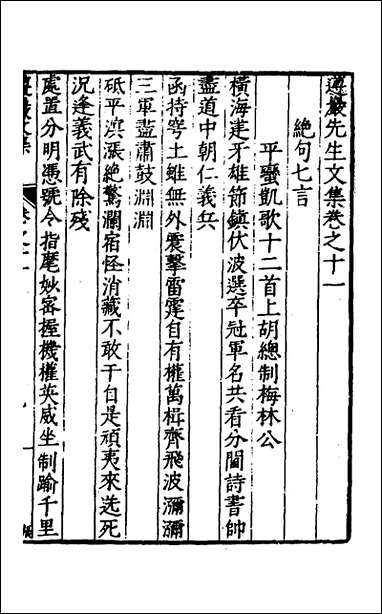 遵巖先生文集卷之十一
絶句七言
平蠻凱歌十二首上胡總制梅林公
橫海建牙雄節鎮伏波選卒冠軍名共看分閫詩書帥
盡道中朝仁義兵
函持穹土雖無外震擊雷霆自有權萬楫齊飛波瀰瀰
三軍盡肅鼓淵淵
砥平濵漲絶驚瀾宿怪消藏不敢干自是頑夷來送死
況逢義武有除殘
處置分明憑號令指麾妙密握機權英威坐制踰千里